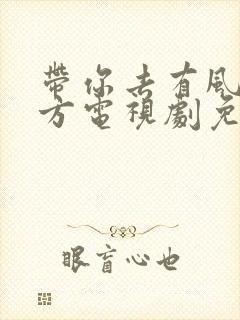 帶你去有風
方電視劇免
眼盲心也